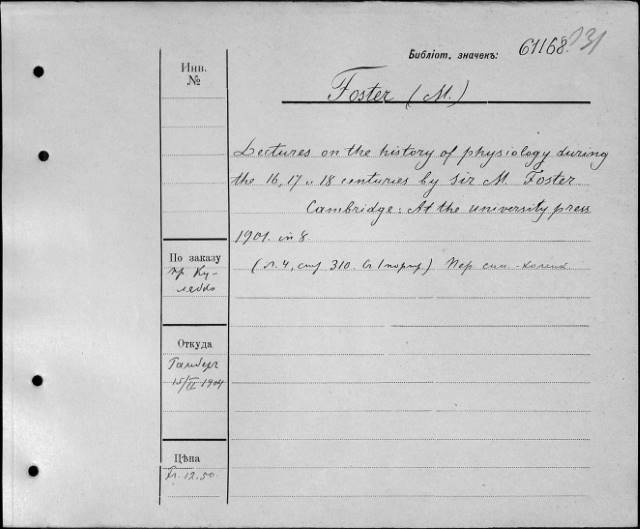 Библіот. значекъ: 61168
Инв.
№
Foster (M.)
Lectures on the history of physiology during
the 16, 17 и 18 centuries by Sir M. Foster
Cambridge: At the university press
1901. in 8
(л. 4, стр 310. Съ 1 портр) Пер син.-
По заказу
пр Ку-
лябко
Откуда
15/II 1904
Цѣна
Fr. 12.50